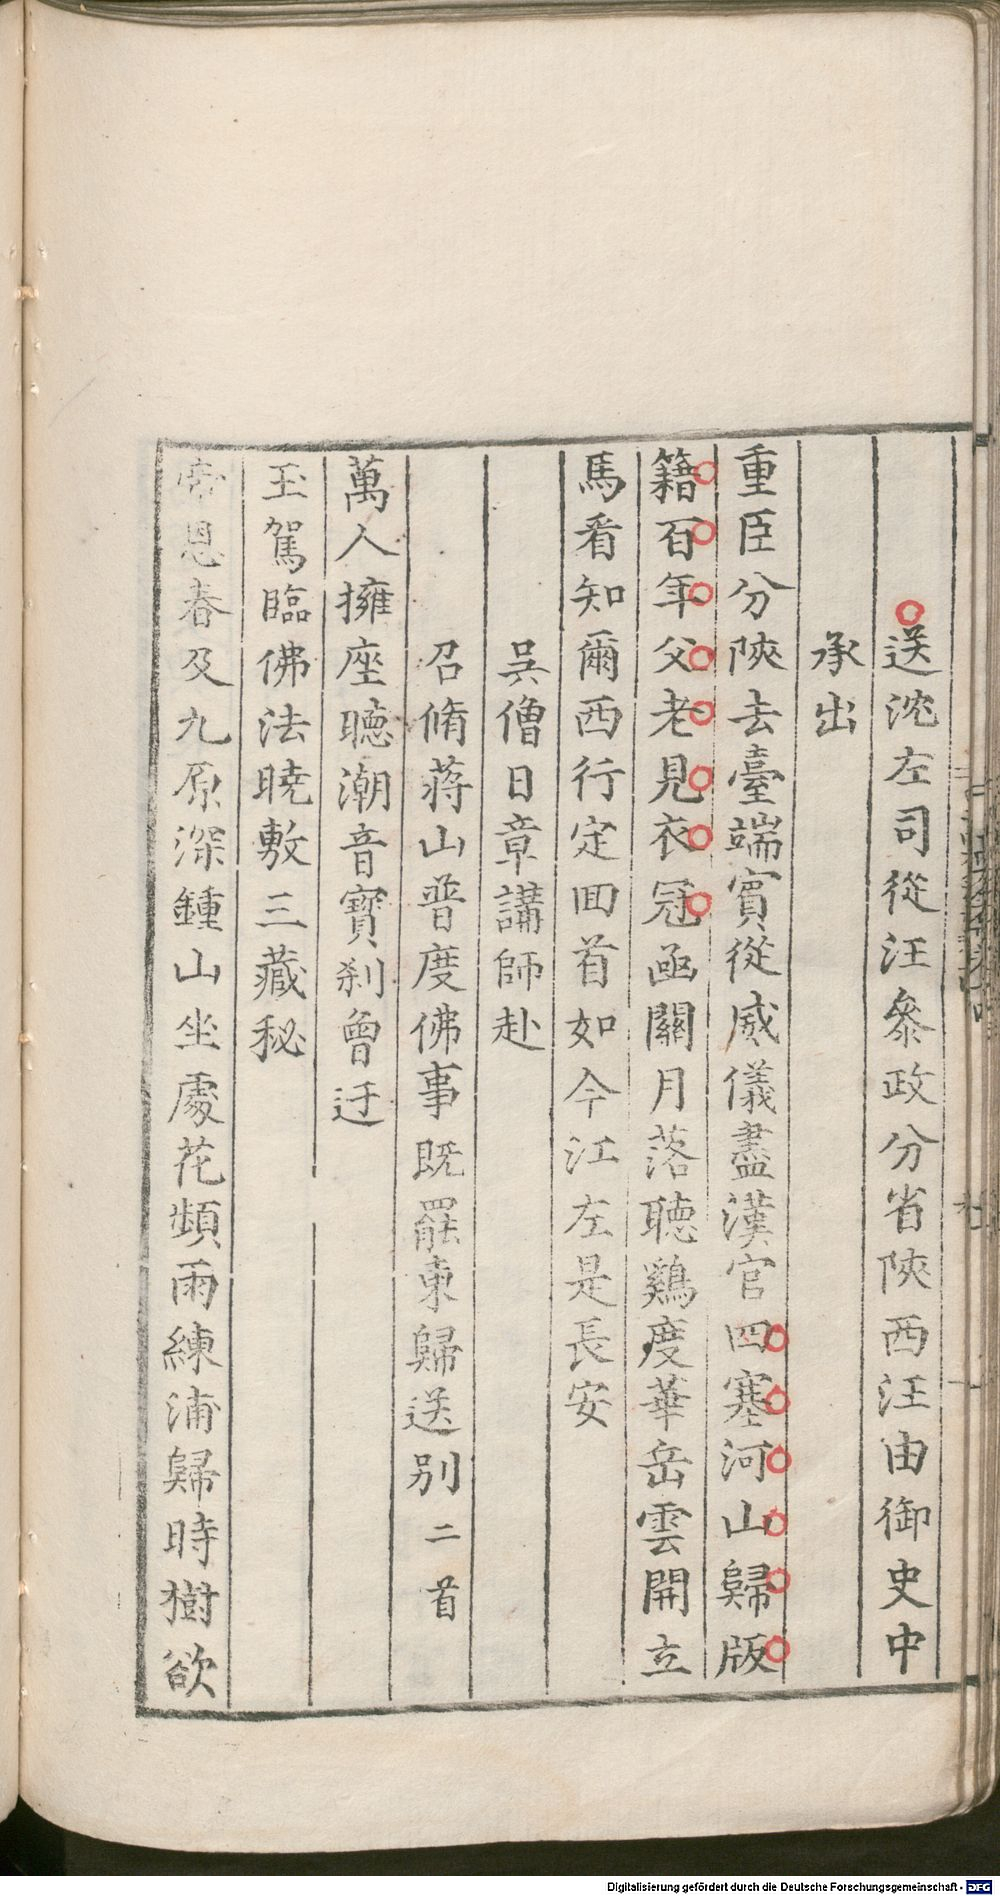 送沈左司從汪叅政分省陝西汪由御史中
承出
重臣分陝去臺端賓從威儀盡漢官四塞河山歸版
籍百年父老見衣冠函關月落聴鷄度華岳雲開立
馬看知爾西行定囬首如今江左是長安
吳僧日章講師赴
召脩蔣山普度佛事既罷東歸送别二首
萬人擁座聴潮音寳刹曾迂
玉駕臨佛法曉敷三藏秘
帝恩春及九原深鍾山坐處花頻雨練浦歸時樹欲
Digitalisierung gefördert durch die Deutsche Forschungsgemeinschaft - DFG